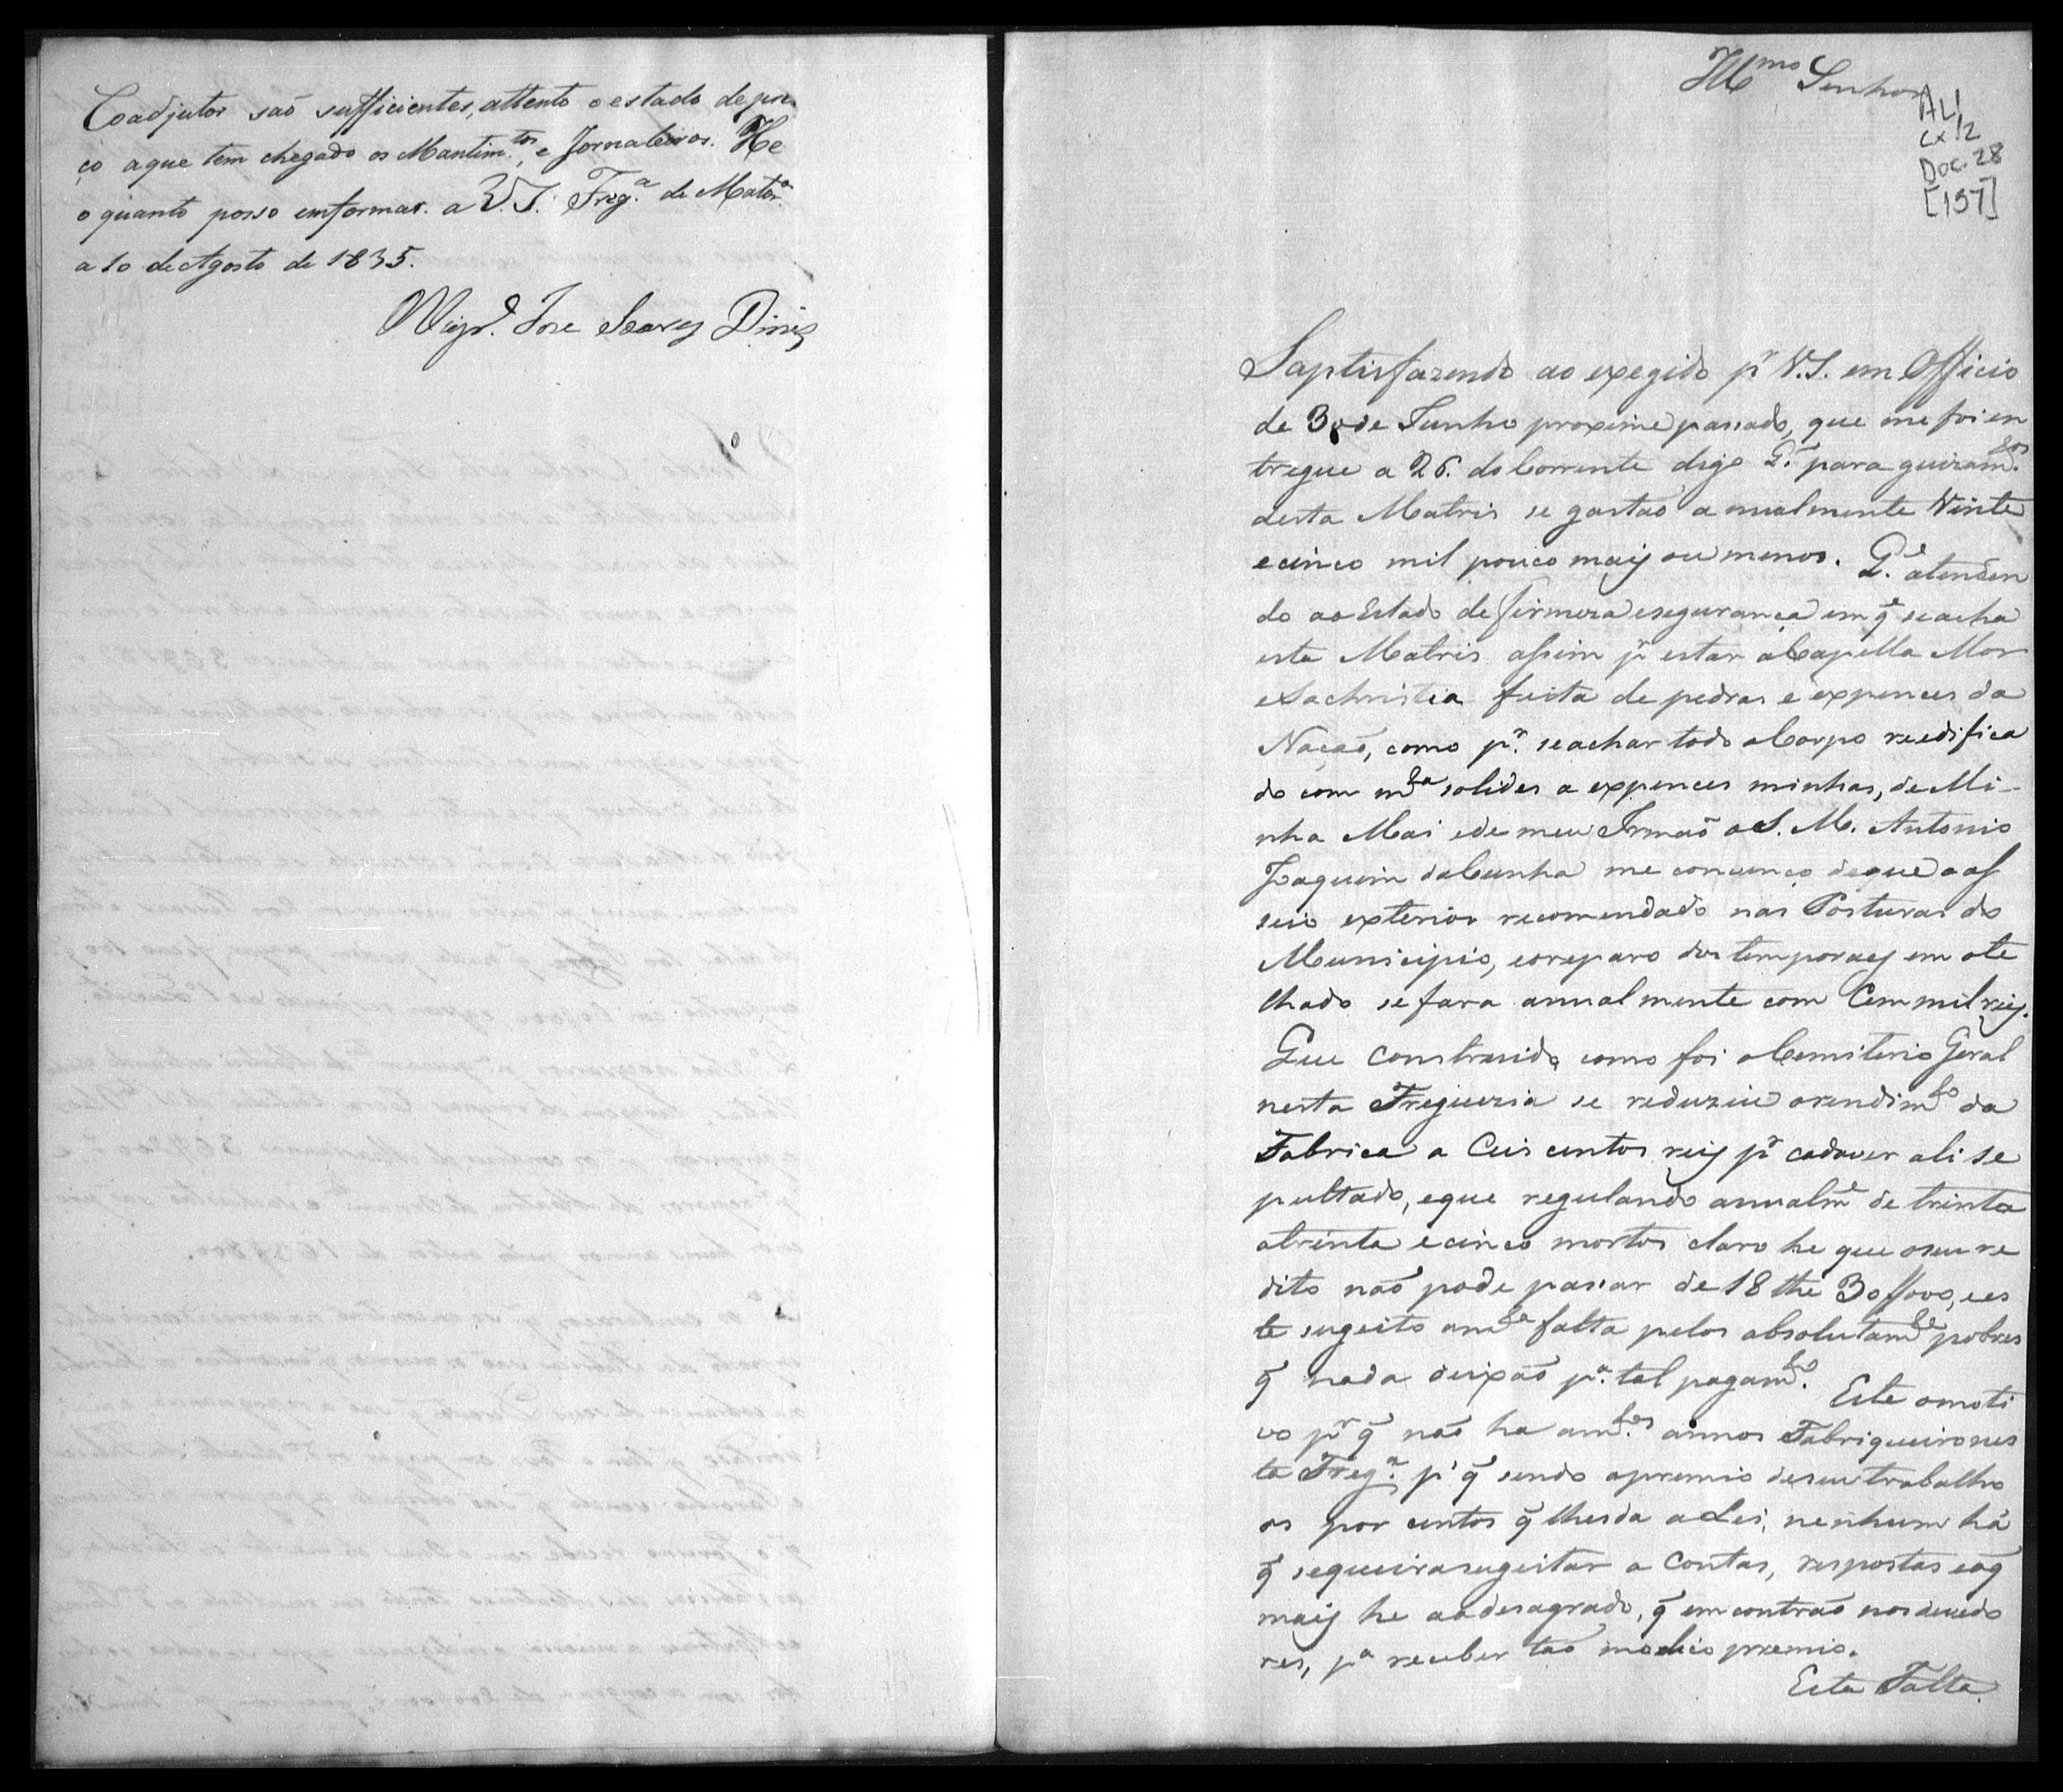 Coadjutor saõ sufficientes, attento o estado de pre
ço a que tem chegado os Mantim.tos, e Jornaleiros. He
o quanto posso emformar a V.S. Freg.a de Mator.
a 10 de Agosto de 1835.
Vigr.o Joze Soares Diniz
Illmo Senhor
AL1
cx 12
Doc. 28
[157]
Saptisfazendo ao exegido pr V.S. em Officio
de 30 de Junho proximé passado, que me foi en
tregue a 26. do Corrente digo Q.e para guizam.tos
desta Matris se gastaõ a nualmente Vinte
e cinco mil pouco mais ou menos. Q.e atenden
do ao Estado de firmeza e segurança em q̃ se acha
esta Matris assim pr estar a Capella Mor
e Sachristia feita de pedras e expences da
Naçaõ, como pr. se achar todo o Corpo reedifica
do com m.ta solides a expences minhas, de Mi-
nha Mai e de meu Irmaõ o S. M. Antonio
Joaquim da Cunha me convenço de que o as
seio exterior recomendado nas Posturas do
Municipio, e o reparo dos temporaes em o te
lhado se fara annualmente com Cem mil reis.
Que construido como foi o Cemiterio Geral
nesta Freguezia se reduziu o rendim.to da
Fabrica a Seis centos reis pr cadaver ali se
pultado, e que regulando anualm.e de trinta
a trinta e cinco mortos claro he que o seu re
dito naõ pode passar de 18 the 30$000, e es
te sugeito a m.ta falta pelos absolutam.te pobres
q̃ nada deixaõ p.a tal pagam.to. Este o moti
vo pr q̃ naõ ha a m.tos annos Fabriqueiro nes
ta Freg.a pr q̃ sendo o premio de seu trabalho
os por centos q̃ lhes da a Lei, nenhum há
q̃ se queira sugeitar a Contas, respostas e o q̃
mais he ao desagrado, q̃ emcontraõ nos devedo
res, p.a receber taõ modico premio.
Esta Falta